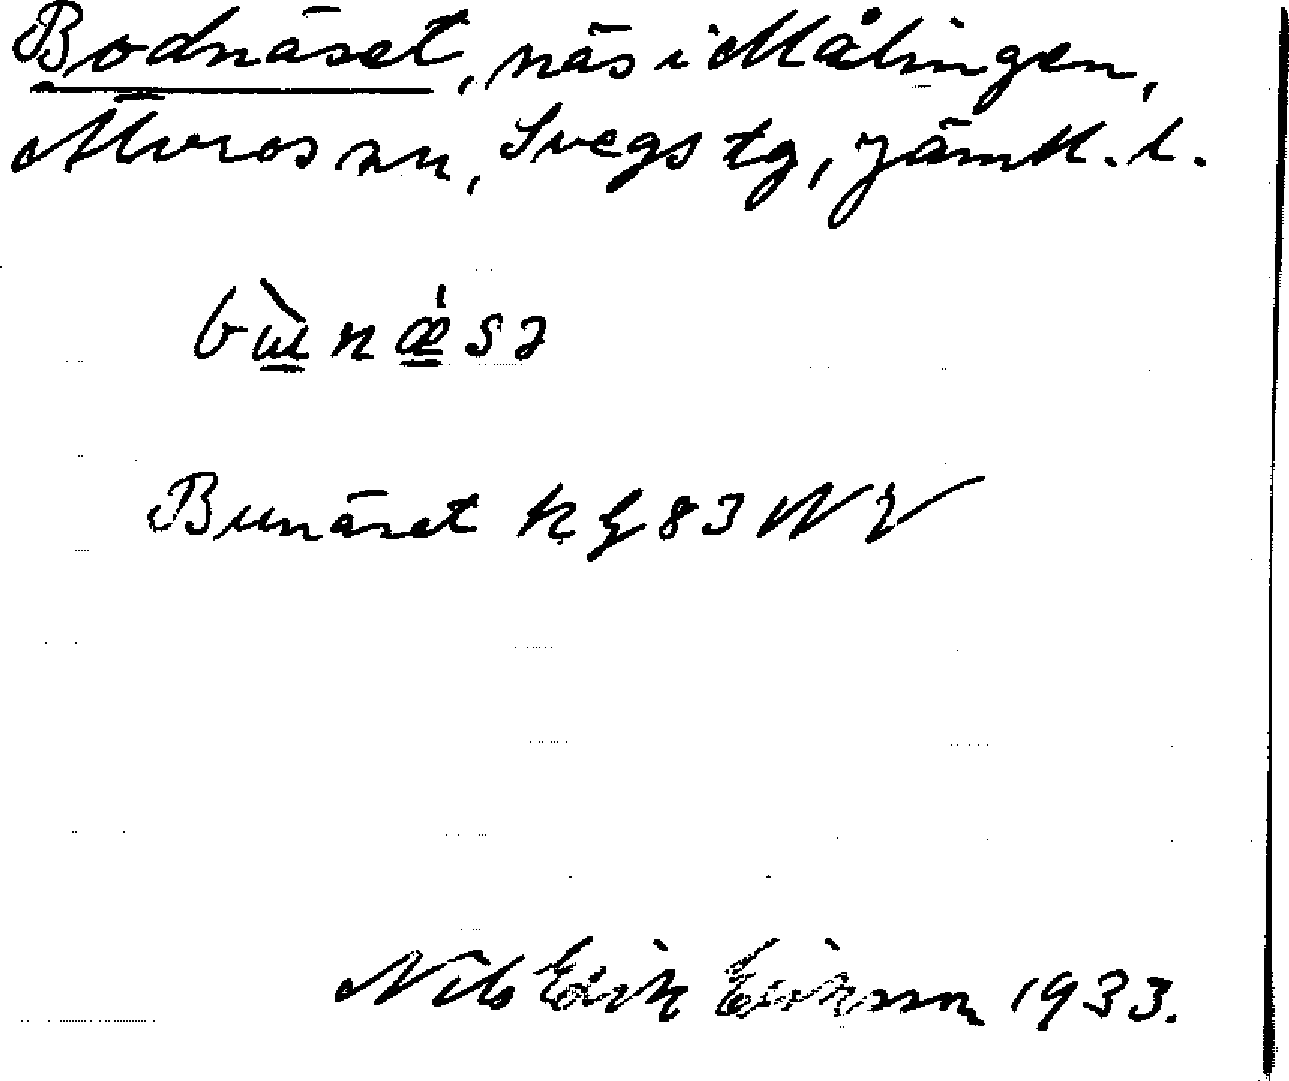 Bodnäset, näs i Målingen,
Älvros sn, Svegs tg, Jämtl. l.
bɯ̀næ̍sə
Bunäset kg 83 NV
Nils Erik Eriksson 1933.